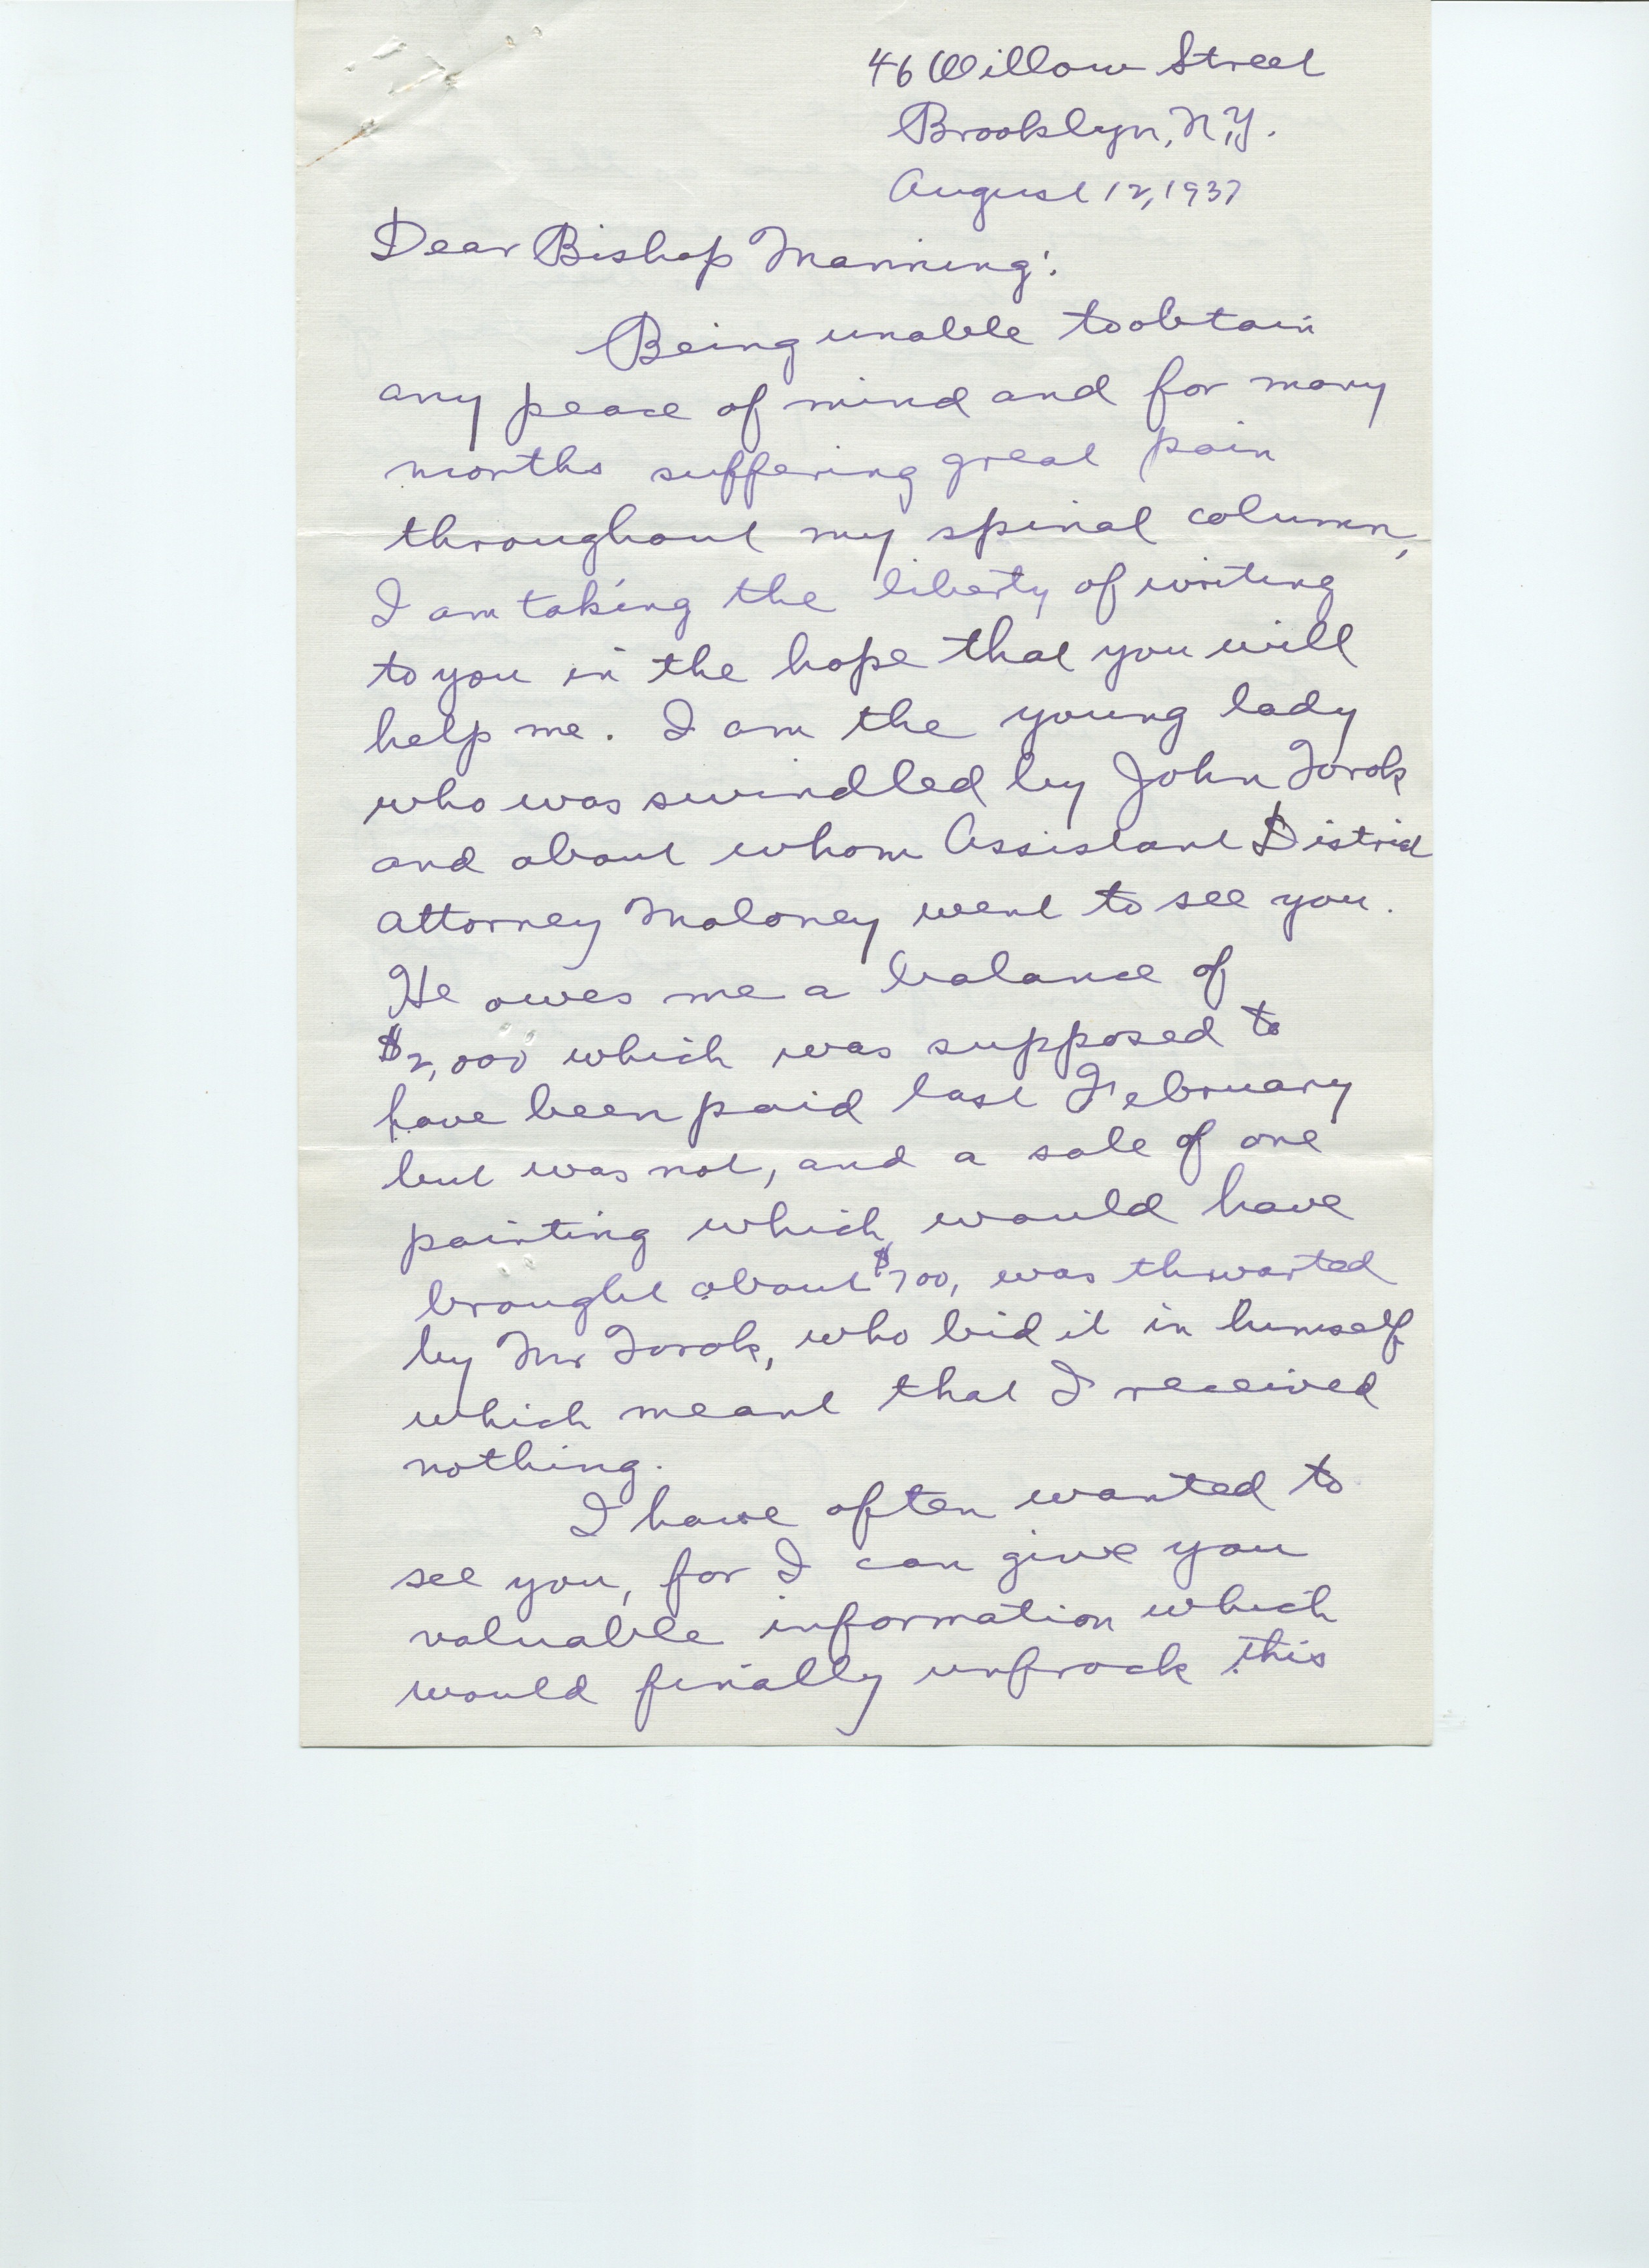 46 Willow Street
Brooklyn, N.Y.
August 12, 1937
Dear Bishop Manning:
Being unable to obtain
any peace of mind and for many
months suffering great pain
throughout my spinal column,
I am taking the liberty of writing
to you in the hope that you will
help me. I am the young lady
who was swindled by John Torok
and about whom Assistant District
Attorney Maloney went to see you.
He owes me a balance of
$2,000 which was supposed to
have been paid last February
but was not, and a sale of one
painting which would have
brought about $700, was thwarted
by Mr Torok, who bid it in himself
which meant that I received
nothing.
I have often wanted to
see you, for I can give you
valuable information which
would finally unfrock this